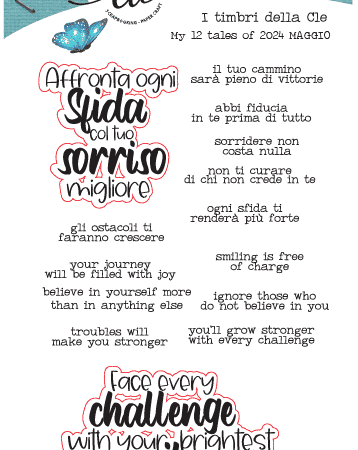 SCRAPBOOKING - PAPER CRAFT
I timbri della Cle
My 12 tales of 2024 MAGGIO
Affronta ogni
Sfida
col tuo
sorriso
migliore
il tuo cammino
sarà pieno di vittorie
abbi fiducia
in te prima di tutto
sorridere non
costa nulla
non ti curare
di chi non crede in te
ogni sfida ti
renderà più forte
gli ostacoli ti
faranno crescere
your journey
will be filled with joy
believe in yourself more
than in anything else
troubles will
make you stronger
smiling is free
of charge
ignore those who
do not believe in you
you'll grow stronger
with every challenge
Face every
challenge
with your brightest